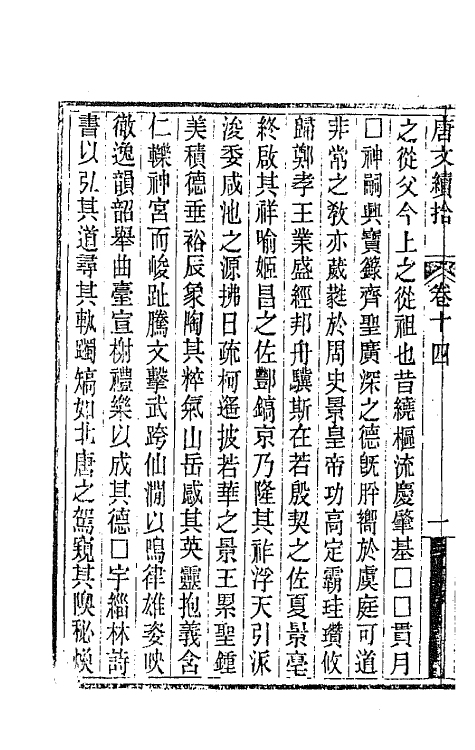 唐文續拾 卷十四 一
之從父今上之從祖也昔繞樞流慶肇基□□貫月
□神嗣興寶籙齊聖廣深之德旣肸嚮於虞庭可道
非常之敎亦葳蕤於周史景皇帝功高定霸珪瓚攸
歸鄭孝王業盛經邦舟驥斯在若殷契之佐夏景亳
終啟其祥喻姬昌之佐酆鎬京乃隆其祚浮天引派
浚委咸池之源拂日疏柯遙披若華之景王累聖鍾
美積德垂裕辰象陶其粹氣山岳感其英靈抱義含
仁轢神宮而峻趾騰文擊武跨仙澗以鳴律雄姿映
徹逸韻韶舉曲臺宣榭禮樂以成其德□宇緇林詩
書以弘其道尋其軌躅矯如北唐之駕窺其隩秘煥